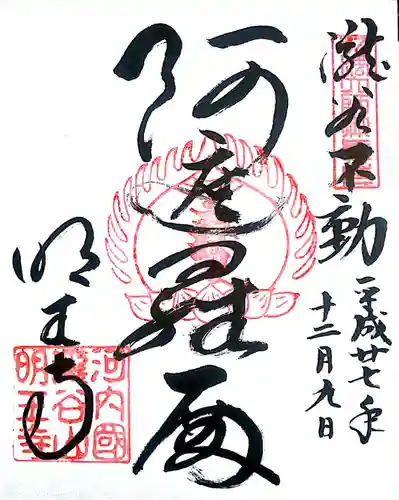 瀧谷不動
平成廿七年
十二月九日
阿遮羅殿
明王寺
河内國
瀧谷山
明王寺